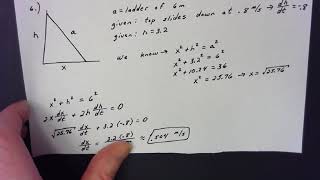 6.)
a = ladder of 6m
given: top slides down at .8 m/s → dh/dt = -.8
given: h = 3.2
h
a
x
we know → x² + h² = a²
x² + 3.2² = 6²
x² + 10.24 = 36
x² = 25.76 → x = √25.76
x² + h² = 6²
2x dx/dt + 2h dh/dt = 0
√25.76 dx/dt + 3.2 (-.8) = 0
= .504 m/s